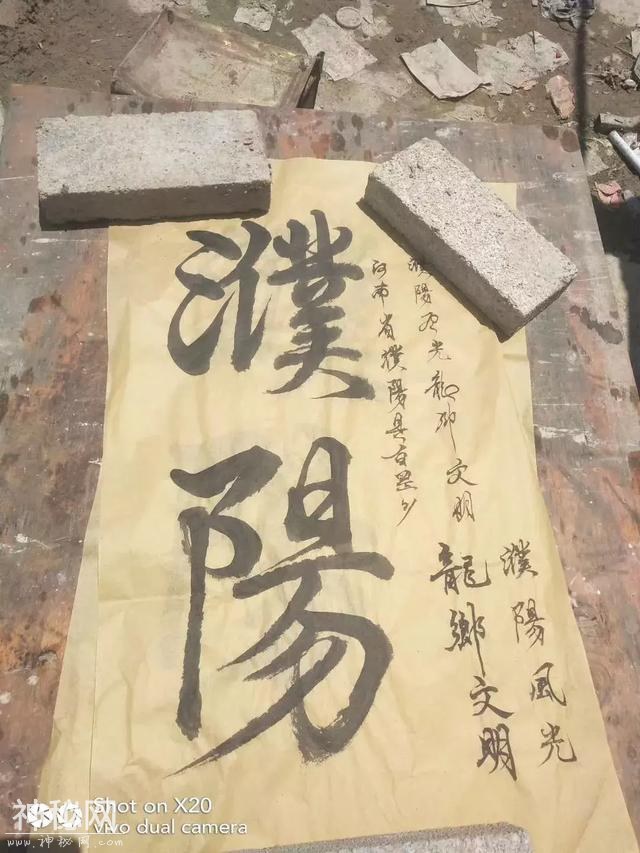 濮陽
濮陽風光龍鄉文明
河南省濮陽县
濮陽風光
龍鄉文明
Shot on X20
Vivo dual camera
神秘网
www.神秘网.com